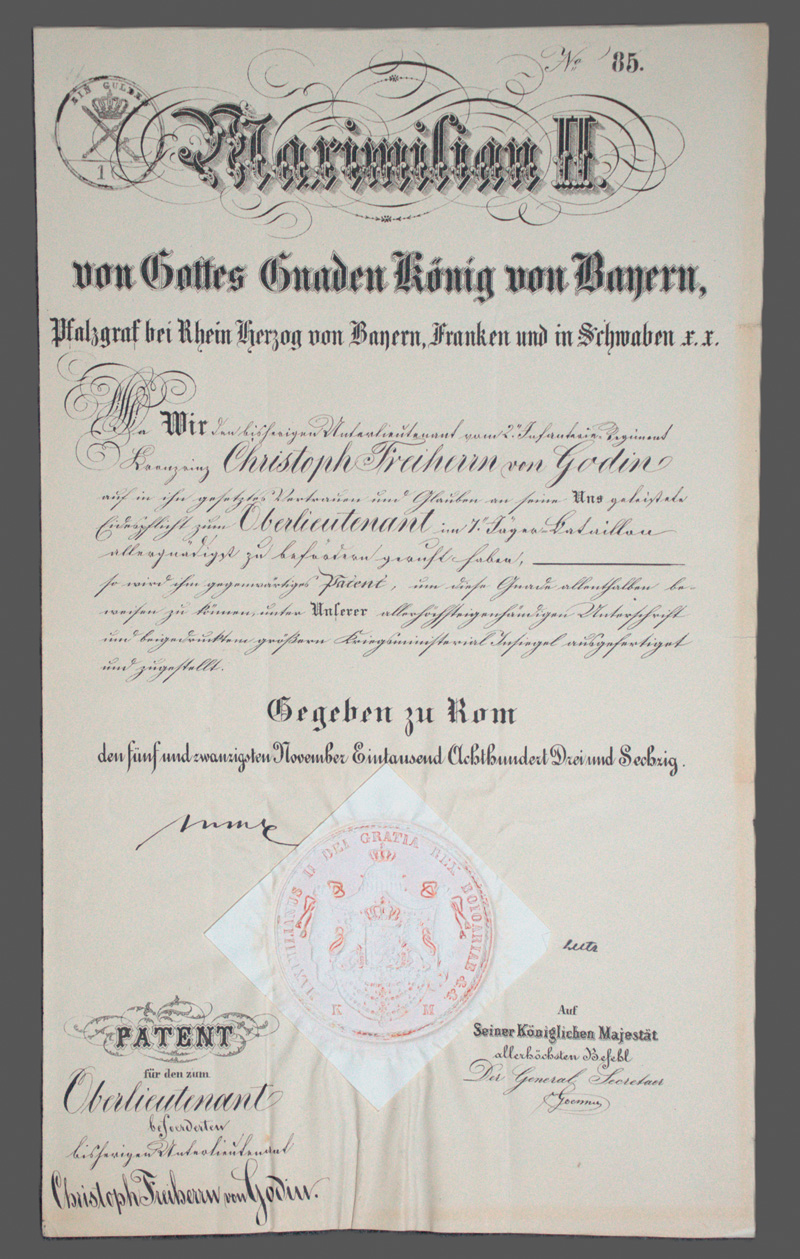 No 85.
EIN GULDEN
1
Maximilian II.
von Gottes Gnaden König von Bayern,
Pfalzgraf bei Rhein Herzog von Bayern, Franken und in Schwaben x. x.
Da Wir den bisherigen Unterlieutenant vom 2. Infanterie-Regiment
Kronprinz Christoph Freiherrn von Godin
auf in ihn gesetztes Vertrauen und Glauben an seine Uns geleistete
Eidespflicht zum Oberlieutenant im 7. Jäger-Bataillon
allergnädigst zu befördern geruht haben,
so wird ihm gegenwärtiges Patent, um diese Gnade allenthalben be-
weisen zu können, unter Unserer allerhöchsteigenhändigen Unterschrift
und beigedrucktem größern Kriegsministerial Insiegel ausgefertiget
und zugestellt.
Gegeben zu Rom
den fünf und zwanzigsten November Eintausend Achthundert Drei und Sechzig.
MAXIMILIANUS II DEI GRATIA REX BOIOARIAE &.&.
K M
Auf
Seiner Königlichen Majestät
allerhöchsten Befehl
Der General Secretaer
PATENT
für den zum
Oberlieutenant
befoerderten
bisherigen Unterlieutenant
Christoph Freiherrn von Godin.